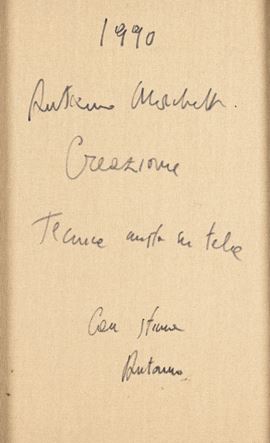 1990
Antonio Marchetti.
Creazione
Tecnica mista su tela
Con stima
Antonio